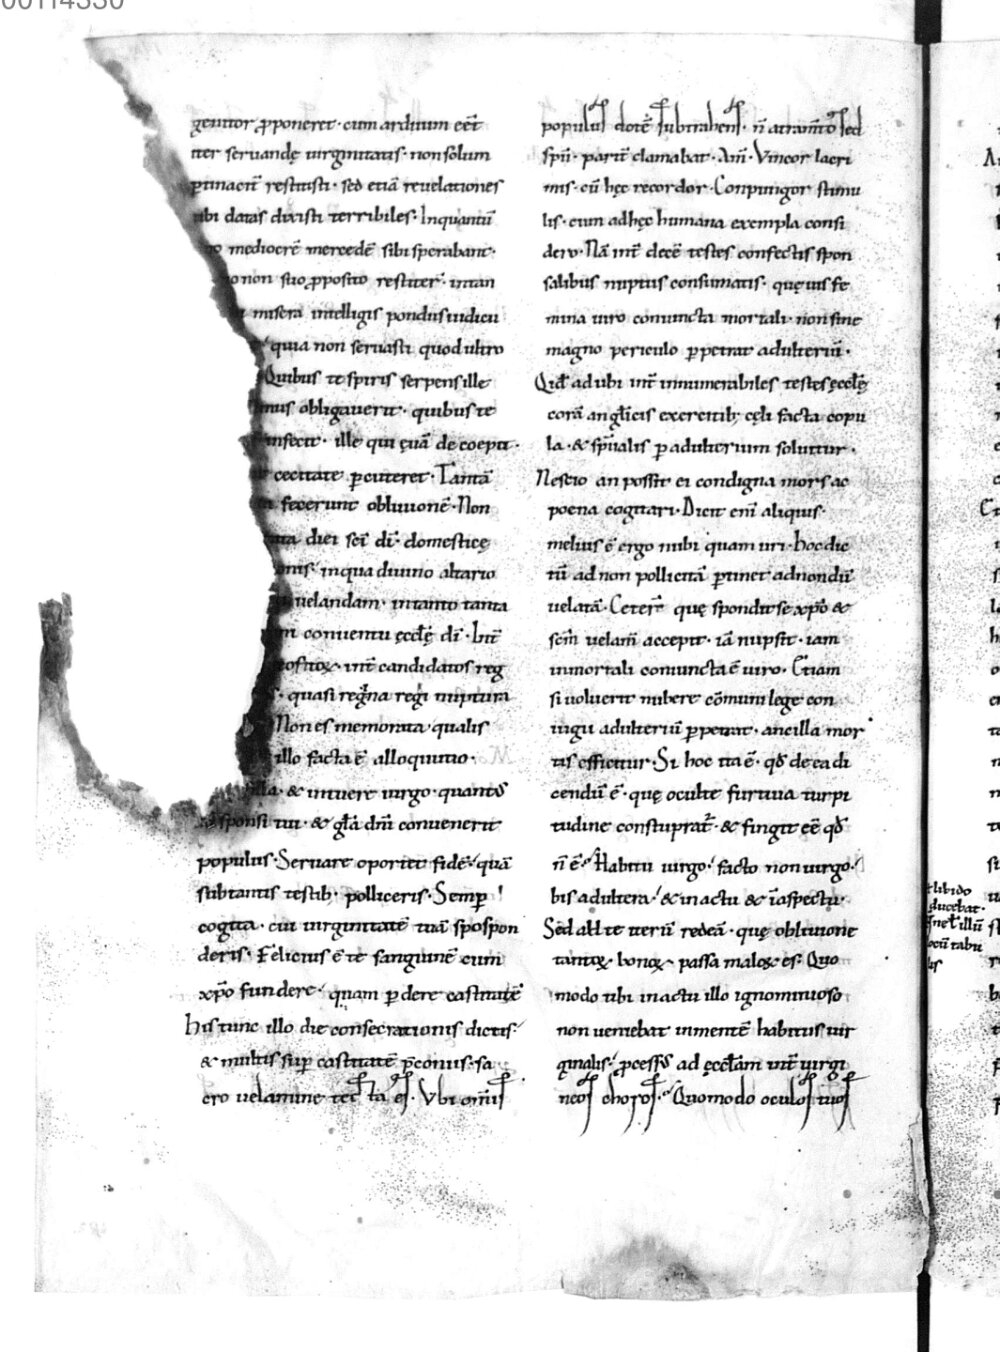 00114330
genitor ꝓponeret· cum arduum eēt
iter seruandę uirginitatis· non solum
ptinacit̄ restitisti· sed etiā reuelationes
tibi datas dixisti terribiles· Inquantū
mediocrē mercedē sibi sperabant·
non suo ꝓposito restiter̄· intan
misera intelligis pondus iudicii
quia non seruasti quod ultro
Quibus te spiris serpens ille
obligauerit· quibus te
infecit· ille qui ęuā decoepit·
cecitate ꝑcuteret· Tantā
fecerunt obliuionē· Non
diei sc̄i dī· domesticę
inqua diuino altario
uelandam· intanto tanta
conuentu ęccłę dī· Int̄
int̄ candidatos reg
quasi regina regi nuptura
Non es memorata qualis
illo facta ē alloquutio·
& intuere uirgo· quantꝰ
sponsi tui· & gła dn̄i conuenerit
populus· Seruare oportet fidē· quā
sub tantis testib; polliceris· Semꝑ
cogita· cui uirginitatē tuā spospon
deris· Felicius ē te sanguinē cum
xp̄o fundere· quam ꝑdere castitatē
his tunc illo die consecrationis dictis·
& multis suꝑ castitatē p̄coniis· sa
cro uelamine tecta es· Vbi om̄is
populus dotē subtrahens· n̄ atram̄to sed
sp̄u· parit̄ clamabat· Am̄· Vincor lacri
mis· cū hęc recordor· Conpungor stimu
lis· cum adhęc humana exempla consi
dero· Nā int̄ decē testes confectis spon
salibus nuptiis consumatis· quęuis fe
mina uiro coniuncta mortali· non sine
magno periculo ꝑpetrat adulteriū·
Qid ad ubi int̄ innumerabiles testes ęccłę
corā angłicis exercitib; cęli facta copu
la· & sp̄ualis ꝑ adulterium soluitur·
Nescio an possit ei condigna mors ac
poena cogitari· Dicit eni aliquis·
melius ē ergo nubi quam uri· Hoc dic
tū ad non pollicitā ꝑtinet ad nondū
uelatā· Ceterū quę spondit se xp̄o &
sc̄m uelam̄ accepit· iā nupsit· iam
inmortali coniuncta ē uiro· Etiam
si uoluerit nubere cōmuni lege con
iugii adulteriū ꝑpetrat· ancilla mor
tis efficitur· Si hoc ita ē· qđ de ea di
cendū ē· quę oculte furtiua turpi
tudine constuprat̄· & fingit eē qđ
n̄ ē· Habitu uirgo· facto non uirgo·
bis adultera· & in actu & iāspectu·
Sed ad te iterū redeā· quę obliuione
tantoꝝ bonoꝝ passa maloꝝ es· Quo
modo tibi in actu illo ignominioso
non ueniebat in mentē habitus uir
ginalis· ꝓcessꝰ ad ęccłam int̄ uirgi
neos choros· Quomodo oculos tuos
libido
ducebat·